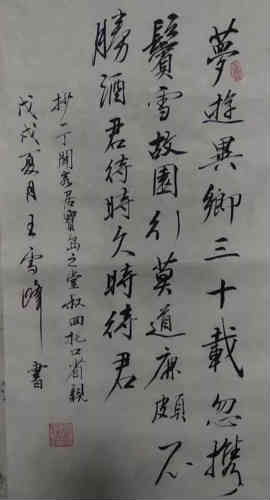 夢遊異鄉三十載忽攜
鬢雪故園行莫道廉頗不
勝酒君待時久時待君
抄丁開客居寶島之堂叔回扎口省親
戊戌夏月王雪峰書